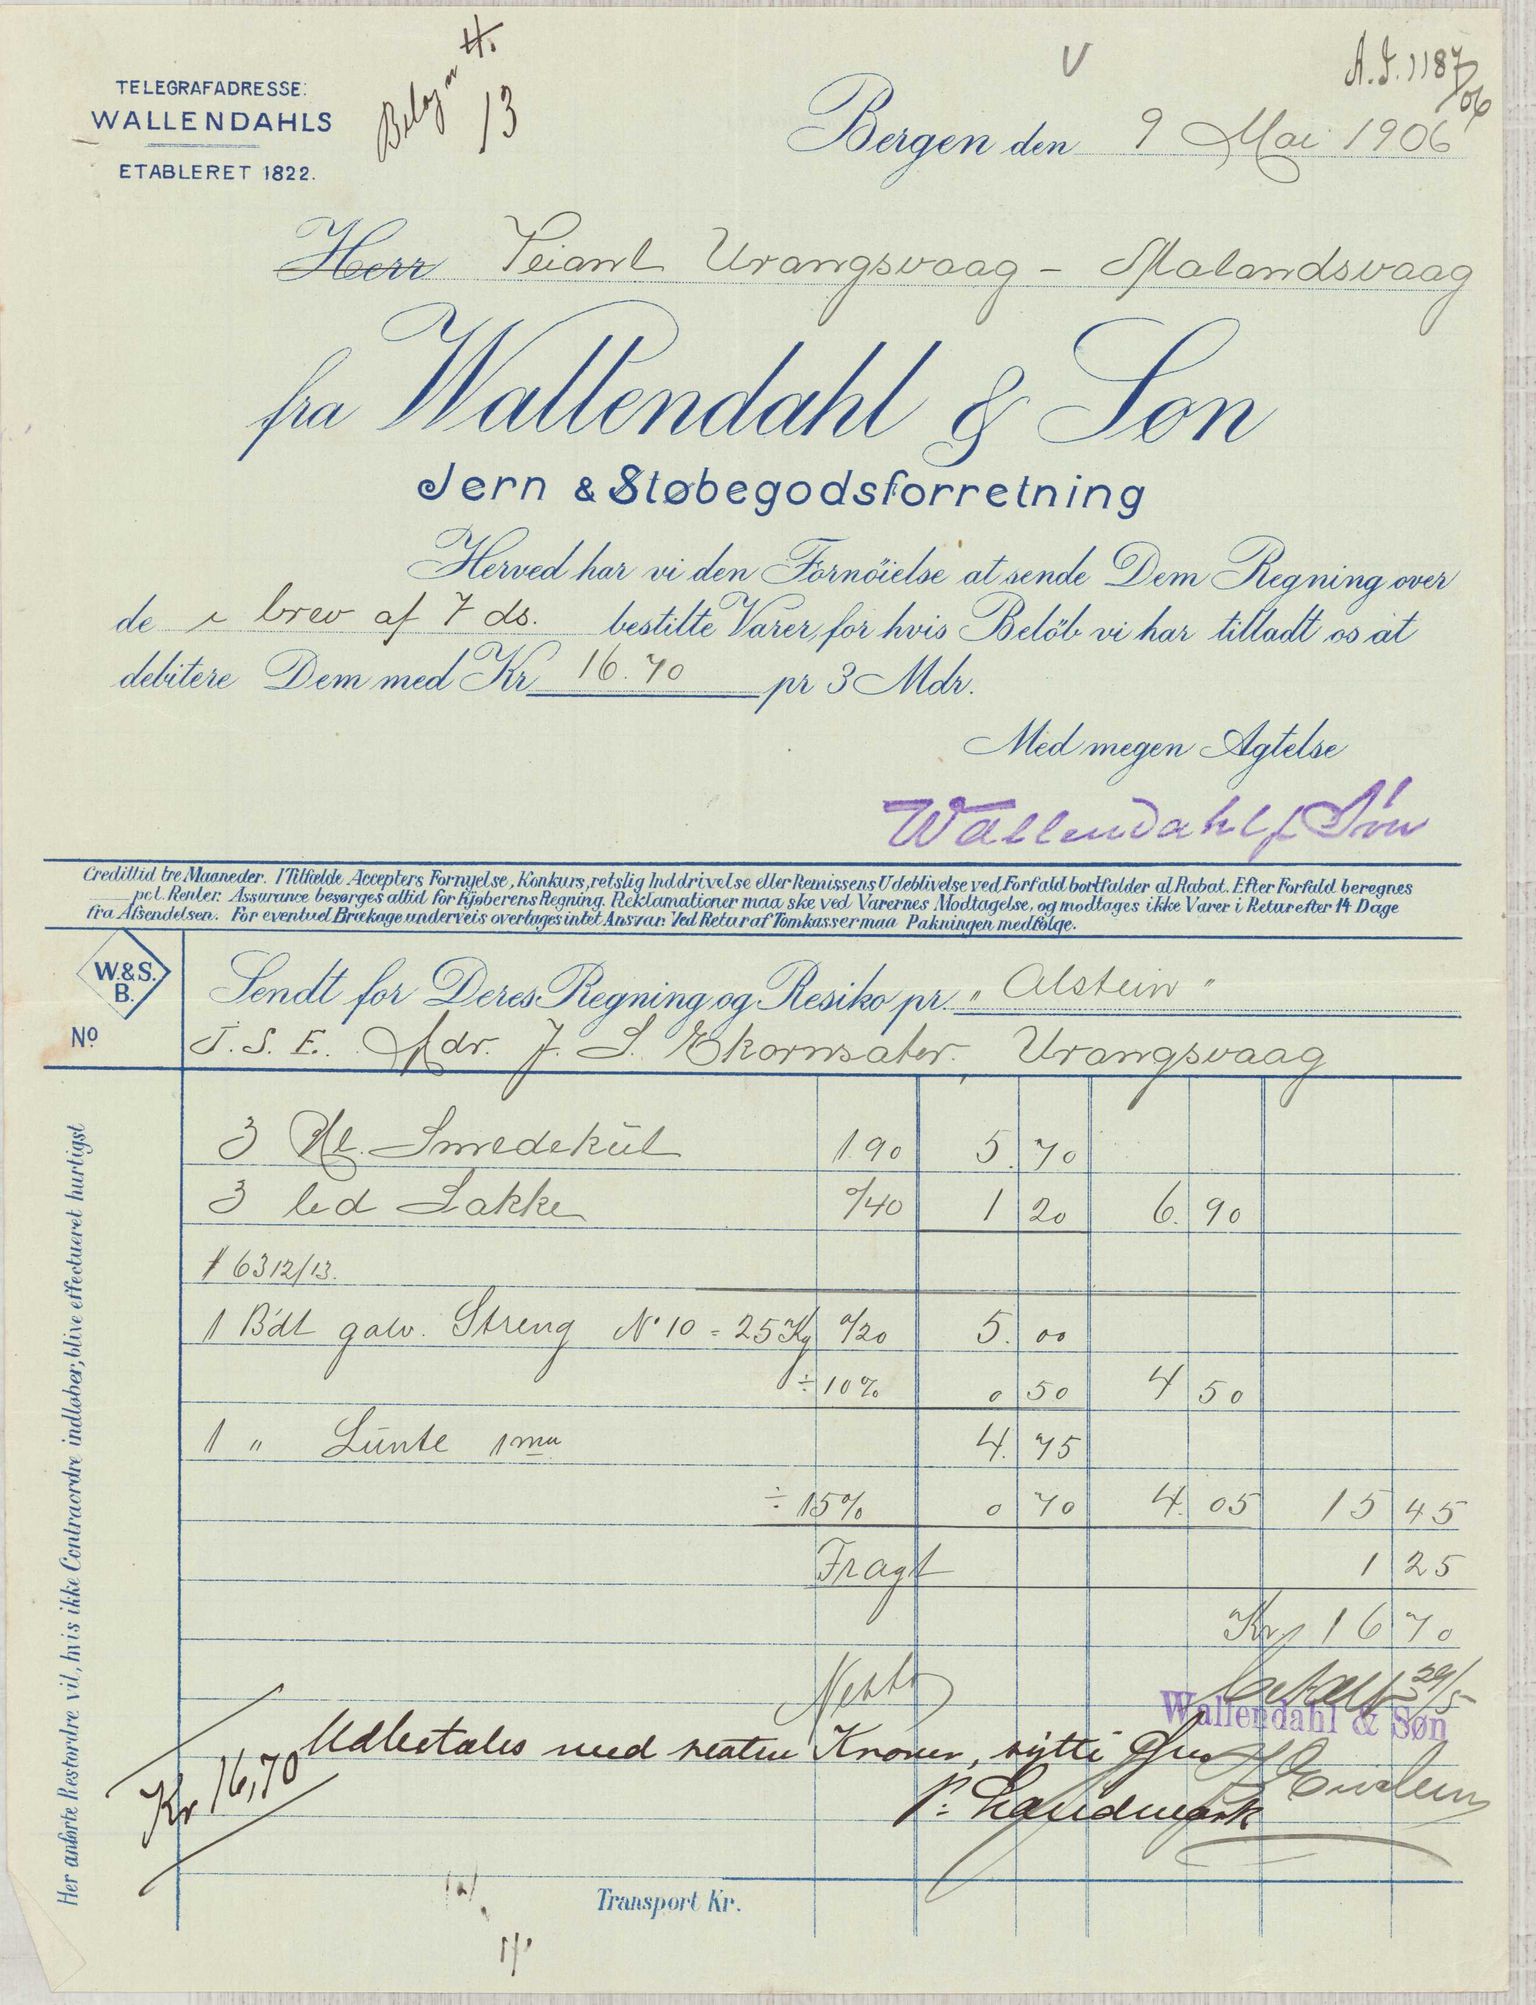 TELEGRAFADRESSE:
WALLENDAHLS
ETABLERET 1822.
13
A.J. 1187/06
Bergen den 9 Mai 1906
Herr Veianl Urangsvaag - Malandsvaag
fra Wallendahl & Søn
Jern & Støbegodsforretning
Herved har vi den Fornöielse at sende Dem Regning over
de i brev af 7 ds. bestilte Varer, for hvis Belöb vi har tilladt os at
debitere Dem med Kr 16.70 pr 3 Mdr.
Med megen Agtelse
Wallendahl & Søn
Credittid tre Maaneder. I Tilfælde Accepters Fornyelse, Konkurs, retslig Inddrivelse eller Remissens Udeblivelse ved Forfald bortfalder al Rabat. Efter Forfald beregnes
pct. Renter. Assurance besørges altid for Kjøberens Regning. Reklamationer maa ske ved Varernes Modtagelse, og modtages ikke Varer i Retur efter 14 Dage
fra Afsendelsen. For eventuel Brækage underveis overtages intet Ansvar. Ved Retur af Tomkasser maa Pakningen medfølge.
W. & S.
B.
No
Sendt for Deres Regning og Resiko pr. „Alstein"
J. S. E. Adr. J. S. Ekornsæter, Urangsvaag
3 Hl. Smedekul 1 90 5. 70
3 led Lakke º/40 1 20 6. 90
# 6312/13.
1 Bdt galv. Streng No 10 = 25 Kg º/20 5. 00
÷ 10% 0 50 4 50
1 " Lunte 1ma 4. 75
÷ 15% 0 70 4. 05 15 45
Fragt 1 25
Kr. 16 70
Netto
Betalt 29/5
Wallendahl & Søn
Udbetales med seksten Kroner, sytti Øre
Kr 16,70
p: Landmark
Transport Kr.
Her anførte Restordre vil, hvis ikke Contraordre indløber, blive effectueret hurtigst